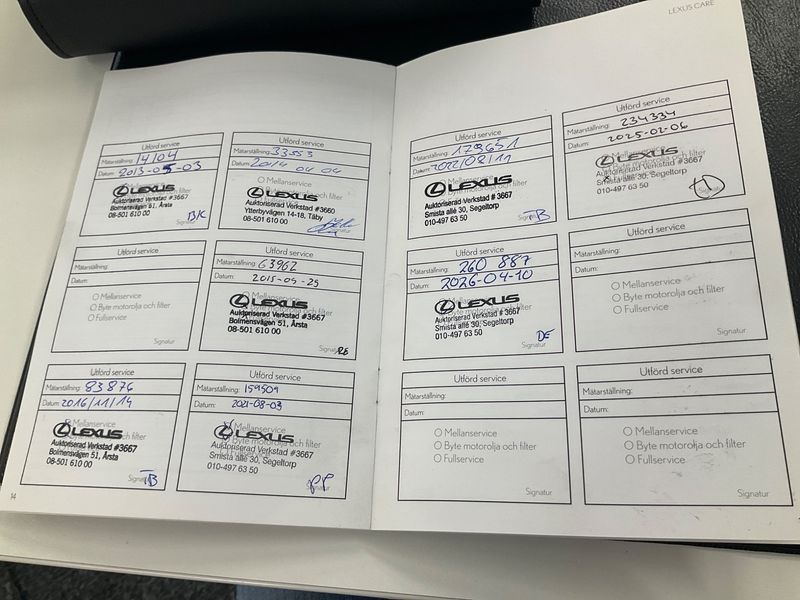 LEXUS CARE
Utförd service
Mätarställning: 14104
Datum: 2013-05-03
LEXUS
Auktoriserad Verkstad #3667
Bolmensvägen 51, Årsta
08-501 610 00
Signatur
Utförd service
Mätarställning: 33553
Datum: 2014 04 04
Mellanservice
LEXUS
Auktoriserad Verkstad #3660
Ytterbyvägen 14-18, Täby
08-501 610 00
Signatur
Utförd service
Mätarställning:
Datum:
Mellanservice
Byte motorolja och filter
Fullservice
Signatur
Utförd service
Mätarställning: 63962
Datum: 2015-05-25
LEXUS
Auktoriserad Verkstad #3667
Bolmensvägen 51, Årsta
08-501 610 00
Signatur
Utförd service
Mätarställning: 83876
Datum: 2016/11/14
Mellanservice
LEXUS
Auktoriserad Verkstad #3667
Bolmensvägen 51, Årsta
08-501 610 00
Signatur
Utförd service
Mätarställning: 159509
Datum: 2021-08-03
Mellanservice
LEXUS
Auktoriserad Verkstad #3667
Smista allé 30, Segeltorp
010-497 63 50
Signatur PP
14
Utförd service
Mätarställning: 179651
Datum: 2022/02/11
LEXUS
Auktoriserad Verkstad #3667
Smista allé 30, Segeltorp
010-497 63 50
Signatur
Utförd service
Mätarställning: 234334
Datum: 2025-02-06
Mellanservice
LEXUS
Byte motorolja och filter
Auktoriserad Verkstad #3667
Smista allé 30, Segeltorp
010-497 63 50
Signatur
Utförd service
Mätarställning: 260 887
Datum: 2026-04-10
LEXUS
Auktoriserad Verkstad #3667
Smista allé 30, Segeltorp
010-497 63 50
Signatur DE
Utförd service
Mätarställning:
Datum:
Mellanservice
Byte motorolja och filter
Fullservice
Signatur
Utförd service
Mätarställning:
Datum:
Mellanservice
Byte motorolja och filter
Fullservice
Signatur
Utförd service
Mätarställning:
Datum:
Mellanservice
Byte motorolja och filter
Fullservice
Signatur